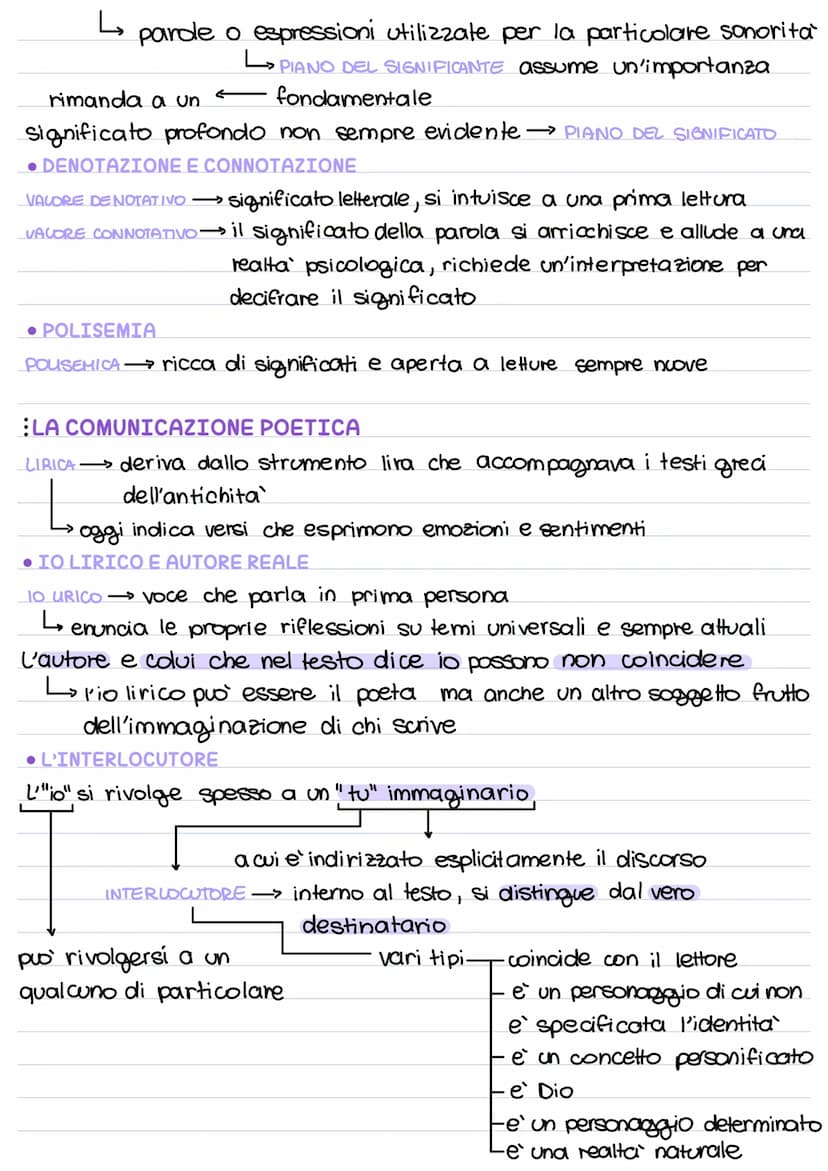 ↳ parole o espressioni utilizzate per la particolare sonorità
↳ PIANO DEL SIGNIFICANTE assume un'importanza
rimanda a un ← fondamentale
significato profondo non sempre evidente → PIANO DEL SIGNIFICATO
• DENOTAZIONE E CONNOTAZIONE
VALORE DENOTATIVO → significato letterale, si intuisce a una prima lettura
VALORE CONNOTATIVO → il significato della parola si arricchisce e allude a una
realta' psicologica, richiede un'interpretazione per
decifrare il significato
• POLISEMIA
POLISEMICA → ricca di significati e aperta a letture sempre nuove
⋮LA COMUNICAZIONE POETICA
LIRICA → deriva dallo strumento lira che accompagnava i testi greci
dell'antichità
↳ oggi indica versi che esprimono emozioni e sentimenti
• IO LIRICO E AUTORE REALE
IO LIRICO → voce che parla in prima persona
↳ enuncia le proprie riflessioni su temi universali e sempre attuali
L'autore e colui che nel testo dice io possono non coincidere
↳ l'io lirico può essere il poeta ma anche un altro soggetto frutto
dell'immaginazione di chi scrive
• L'INTERLOCUTORE
L'"io" si rivolge spesso a un "tu" immaginario
a cui è indirizzato esplicitamente il discorso
INTERLOCUTORE → interno al testo, si distingue dal vero
destinatario
può rivolgersi a un vari tipi coincide con il lettore
qualcuno di particolare - è un personaggio di cui non
è specificata l'identità
- è un concetto personificato
- è Dio
- è un personaggio determinato
- è una realtà naturale